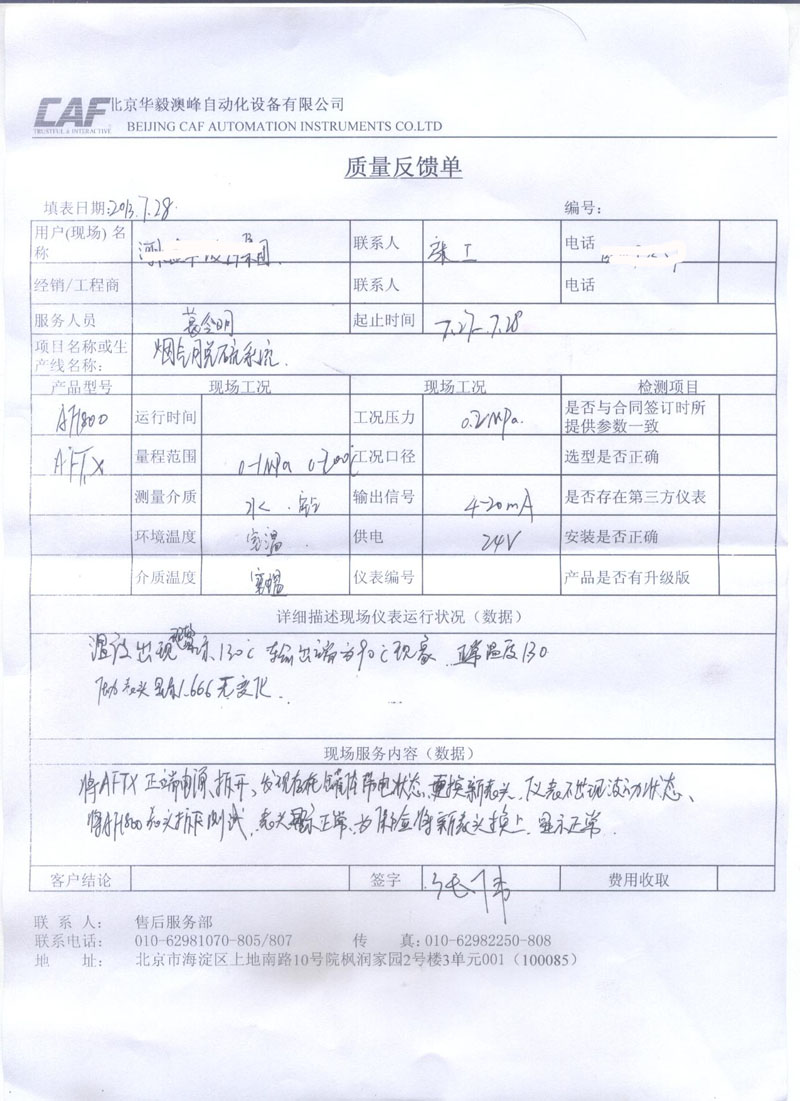 CAF 北京华毅澳峰自动化设备有限公司
TRUSTFUL & INTERACTIVE BEIJING CAF AUTOMATION INSTRUMENTS CO.LTD
质量反馈单
填表日期:2013.7.28. 编号:
用户(现场)名称 集团. 联系人 张工 电话
经销/工程商 联系人 电话
服务人员 起止时间 7.27-7.28
项目名称或生产线名称: 烟气脱硫系统.
产品型号 现场工况 现场工况 检测项目
AF1800 运行时间 工况压力 0.2MPa. 是否与合同签订时所提供参数一致
AFTX 量程范围 0-1MPa 0-200℃ 工况口径 选型是否正确
测量介质 水. 输出信号 4-20mA 是否存在第三方仪表
环境温度 室温 供电 24V 安装是否正确
介质温度 常温 仪表编号 产品是否有升级版
详细描述现场仪表运行状况（数据）
温度出现显示130℃ 输出端为90℃现象. 正常温度130
压力表头显示1.666无变化.
现场服务内容（数据）
将AFTX正端电源拆开,发现在壳罐体带电状态,更换新表头.仪表不出现波动状态、
将AF1800表头拆下测试.表头显示正常.为保险将新表头换上.显示正常.
客户结论 签字 费用收取
联 系 人: 售后服务部
联系电话: 010-62981070-805/807 传 真: 010-62982250-808
地 址: 北京市海淀区上地南路10号院枫润家园2号楼3单元001（100085）